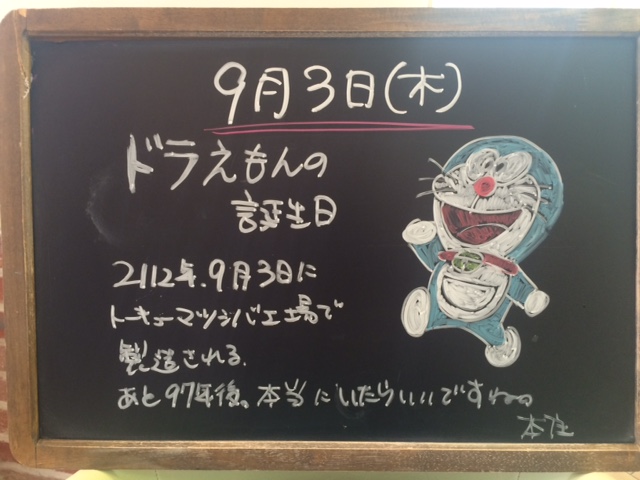 9月3日(木)
ドラえもんの
誕生日
2112年.9月3日に
トーキョーマツシバ工場で
製造される.
あと97年後。本当にいたらいいですね。
本住